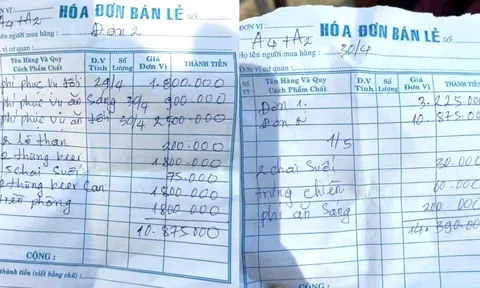 ĐƠN VỊ:
HÓA ĐƠN BÁN LẺ SỐ
A4+A2
Họ tên người mua hàng: Đơn 2
Đơn vị cơ quan:
Tên Hàng Và Quy Cách Phẩm Chất Đ.V Tính Số Lượng Giá Đơn Vị THÀNH TIỀN
phí phục vụ tối 29/4 1.800.000
phí phục vụ ăn sáng 30/4 900.000
phí phục vụ ăn tối 30/4 2 500.000
2 lố than 200.000
2 thùng beer 1.800.000
5 chai suối 75.000
2 thùng beer Can 1800.000
tiền phòng 1800.000
10.875.000
CỘNG:
thành tiền (viết bằng chữ):
ĐƠN VỊ:
HÓA ĐƠN BÁN LẺ SỐ
A4+A2
Họ tên người mua hàng: 30/4
Đơn vị cơ quan:
SỐ TT Tên Hàng Và Quy Cách Phẩm Chất Đ.V Tính Số Lượng Giá Đơn Vị THÀNH TIỀN
Đơn 1. 3.225.000
Đơn 2 10.875.000
1/5
2 chai suối 30.000
trứng chiên 60.000
phí ăn sáng 200.000
14.390.000
CỘNG:
thành tiền (viết bằng chữ):